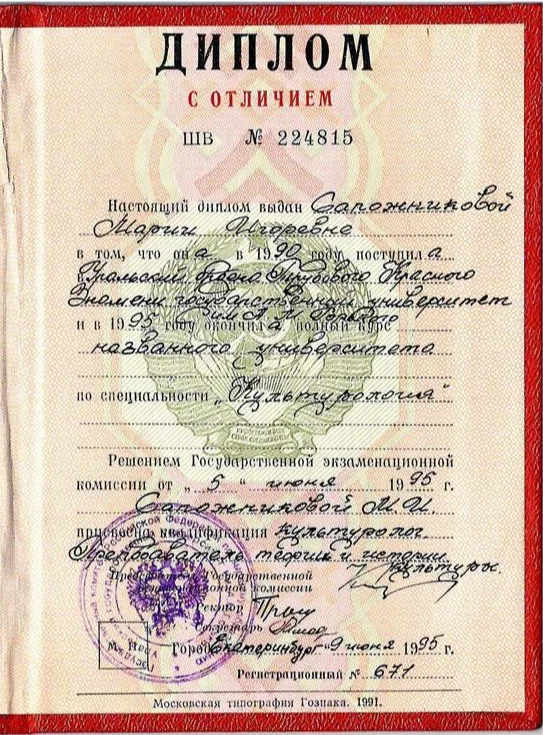 ДИПЛОМ
С ОТЛИЧИЕМ
ШВ № 224815
Настоящий диплом выдан Сапожниковой
Марии Игоревне
в том, что она в 1990 году поступила
в Уральский ордена Трудового Красного
Знамени государственный университет
им А. М. Горького
и в 1995 году окончила полный курс
названного университета
по специальности „Культурология"
Решением Государственной экзаменационной
комиссии от „5" июня 1995 г.
Сапожниковой М. И.
присвоена квалификация культуролог.
Преподаватель теории и истории
культуры.
Председатель Государственной
экзаменационной комиссии
Ректор
Секретарь
М. П.
Город Екатеринбург 9 июня 1995 г.
Регистрационный № 671
Московская типография Гознака. 1991.